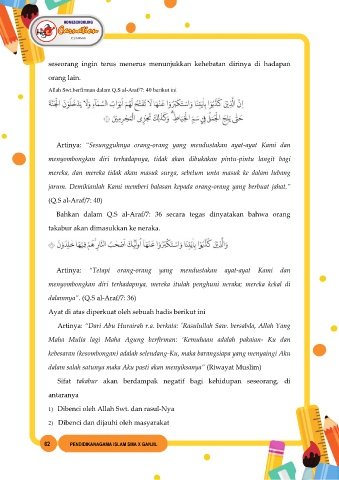 seseorang ingin terus menerus menunjukkan kehebatan dirinya di hadapan
orang lain.
Allah Swt.berfirman dalam Q.S al-Araf/7: 40 berikut ini
اِنَّ الَّذِيْنَ كَذَّبُوْا بِاٰيٰتِنَا وَاسْتَكْبَرُوْا عَنْهَا لَا تُفَتَّحُ لَهُمْ اَبْوَابُ السَّمَاۤءِ وَلَا يَدْخُلُوْنَ الْجَنَّةَ
حَتّٰى يَلِجَ الْجَمَلُ فِيْ سَمِّ الْخِيَاطِ ۗ وَكَذٰلِكَ نَجْزِى الْمُجْرِمِيْنَ
Artinya: "Sesungguhnya orang-orang yang mendustakan ayat-ayat Kami dan
menyombongkan diri terhadapnya, tidak akan dibukakan pintu-pintu langit bagi
mereka, dan mereka tidak akan masuk surga, sebelum unta masuk ke dalam lubang
jarum. Demikianlah Kami memberi balasan kepada orang-orang yang berbuat jahat."
(Q.S al-Araf/7: 40)
Bahkan dalam Q.S al-Araf/7: 36 secara tegas dinyatakan bahwa orang
takabur akan dimasukkan ke neraka.
وَالَّذِيْنَ كَذَّبُوْا بِاٰيٰتِنَا وَاسْتَكْبَرُوْا عَنْهَآ اُولٰۤىِٕكَ اَصْحٰبُ النَّارِ هُمْ فِيْهَا خٰلِدُوْنَ
Artinya: "Tetapi orang-orang yang mendustakan ayat-ayat Kami dan
menyombongkan diri terhadapnya, mereka itulah penghuni neraka; mereka kekal di
dalamnya". (Q.S al-Araf/7: 36)
Ayat di atas diperkuat oleh sebuah hadis berikut ini
Artinya: "Dari Abu Hurairah r.a. berkata: 'Rasulullah Saw. bersabda, Allah Yang
Maha Mulia lagi Maha Agung berfirman: 'Kemuliaan adalah pakaian- Ku dan
kebesaran (kesombongan) adalah selendang-Ku, maka barangsiapa yang menyaingi Aku
dalam salah satunya maka Aku pasti akan menyiksanya" (Riwayat Muslim)
Sifat takabur akan berdampak negatif bagi kehidupan seseorang, di
antaranya
1) Dibenci oleh Allah Swt. dan rasul-Nya
2) Dibenci dan dijauhi oleh masyarakat
62 PENDIDIKANAGAMA ISLAM SMA X GANJIL